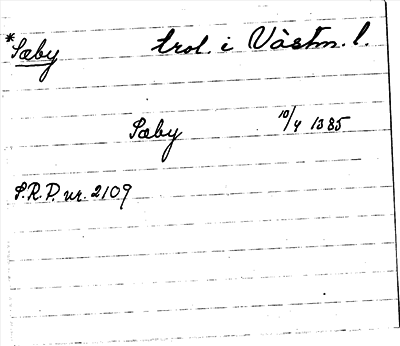 *Sæby trol. i Västm. l.
Sæby 10/4 1385
S.R.P. nr. 2109